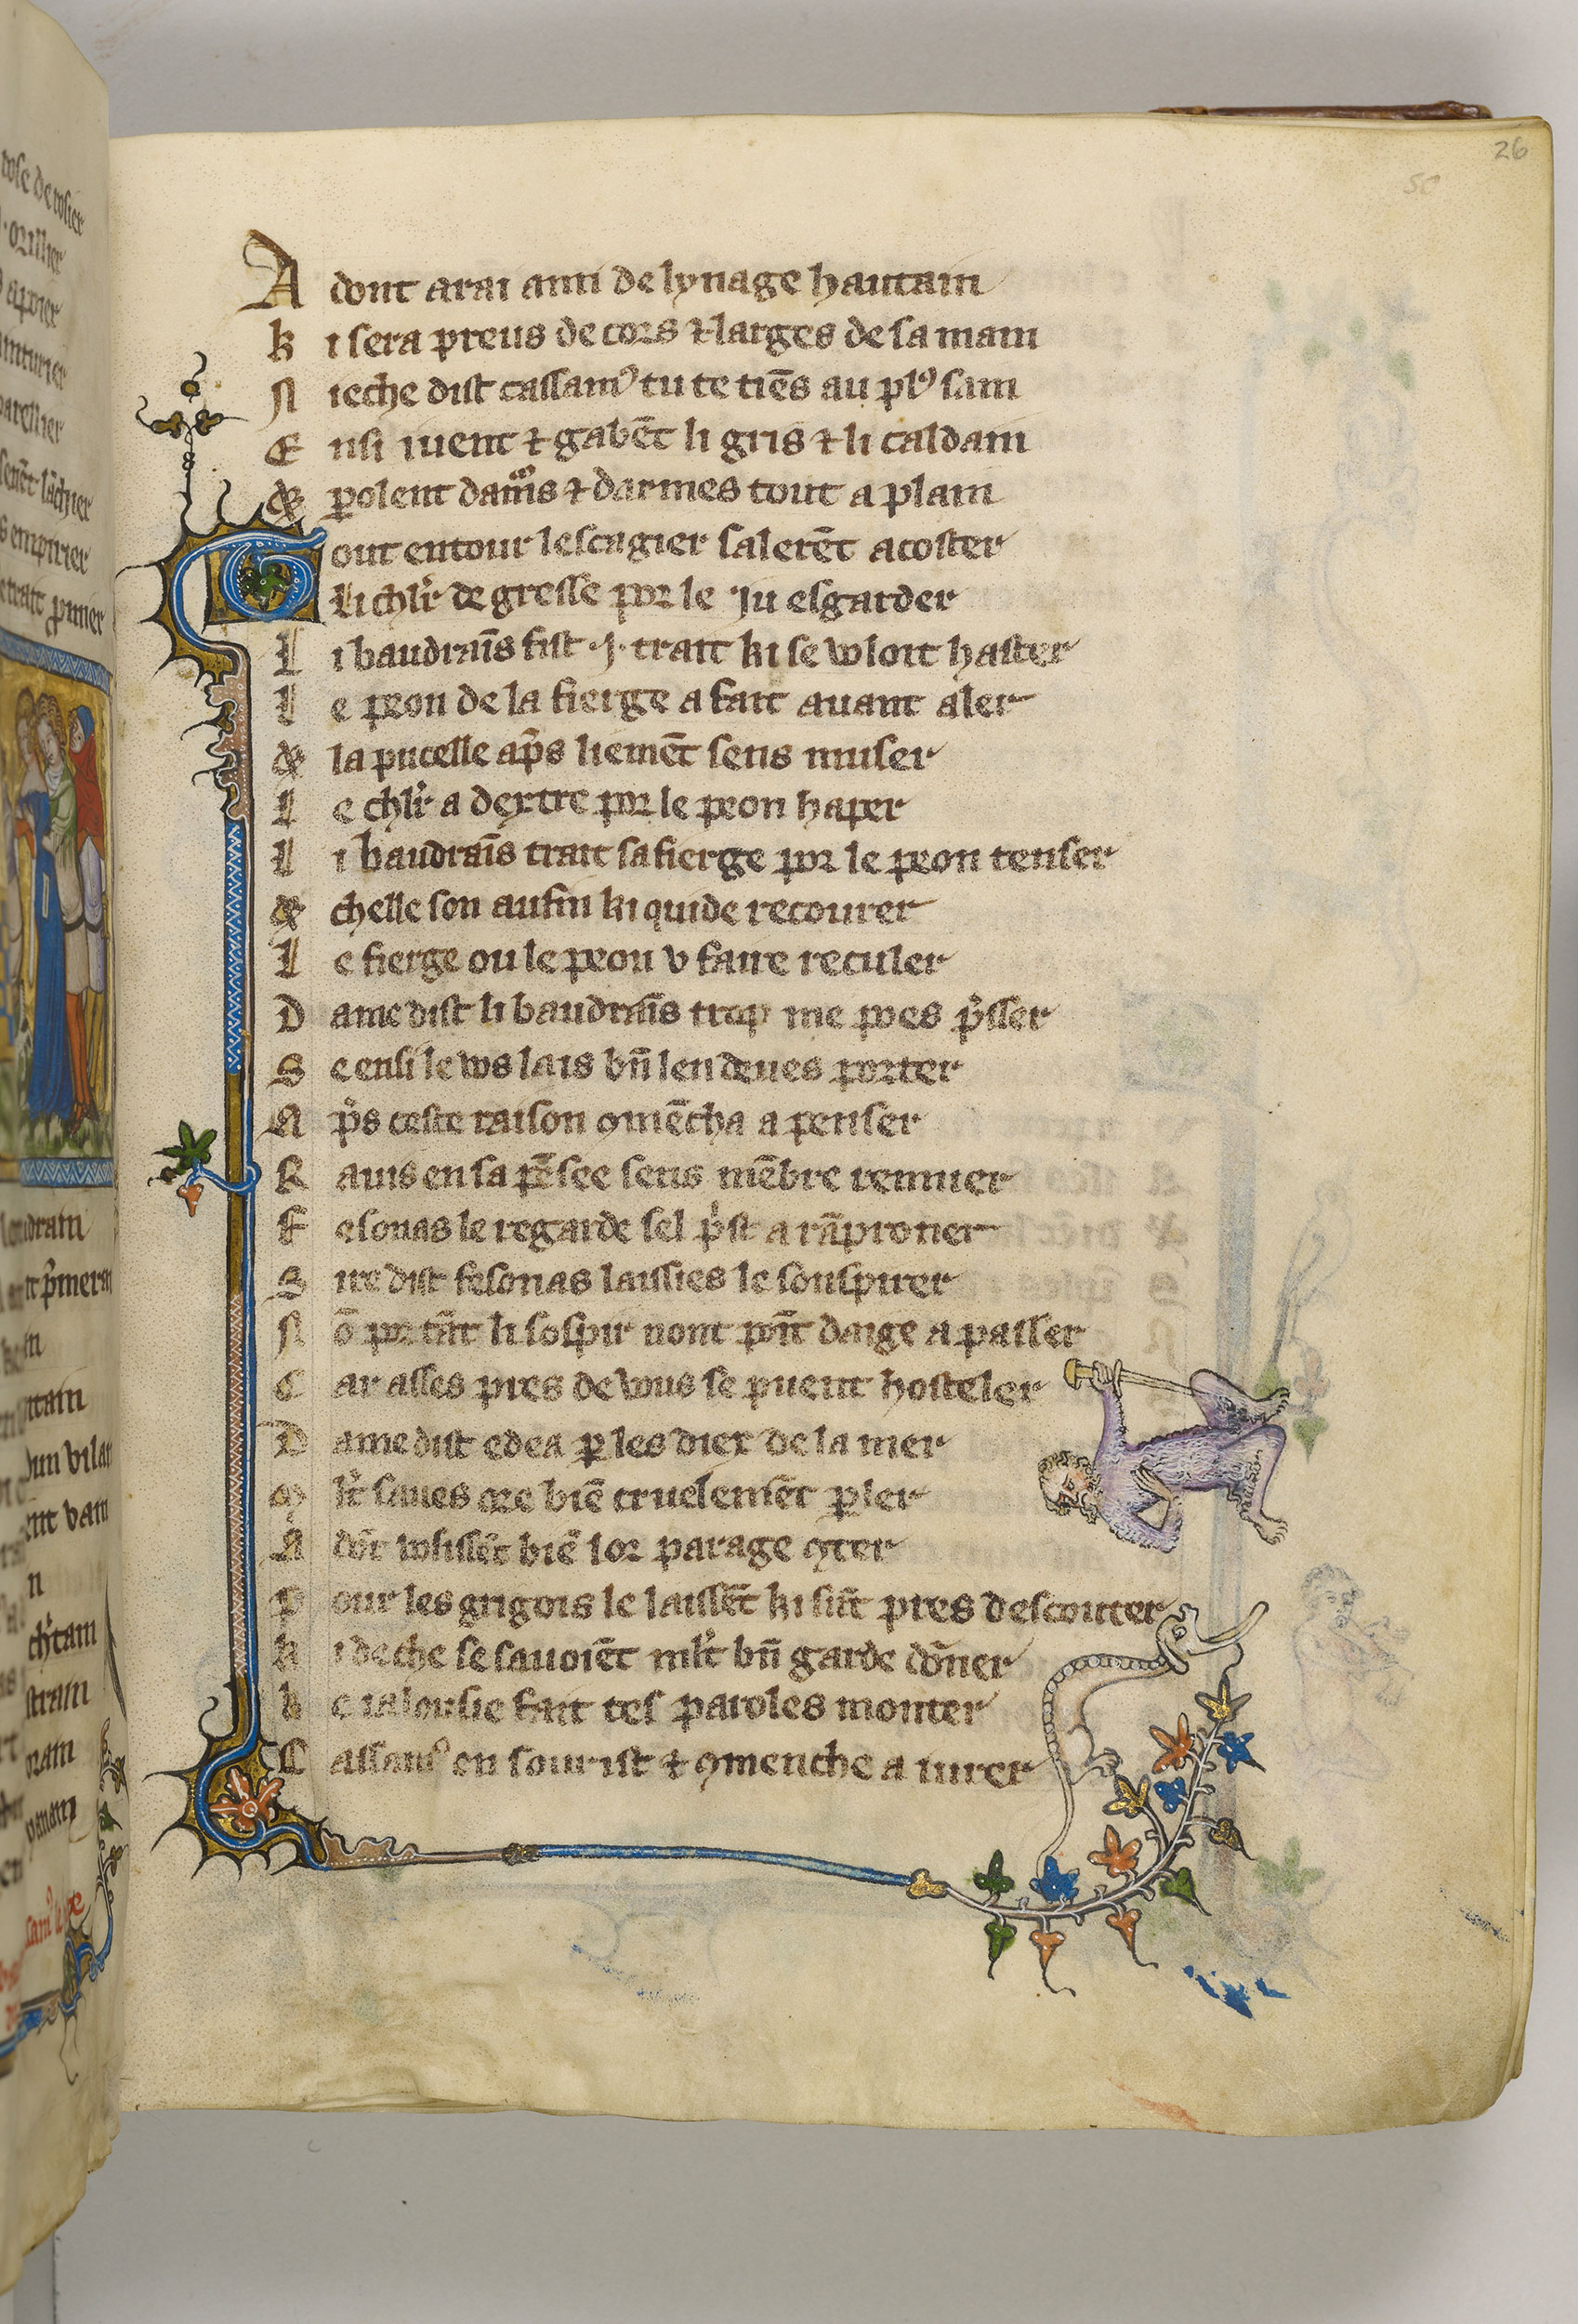 26
50
A dont arai ami de lynage hautain
k i sera preus de cors ⁊ larges de sa main
N ieche dist cassamꝰ tu te tiēs au plꝰ sain
E nsi iuent ⁊ gabēt li gris ⁊ li caldain
& polent damͬs ⁊ darmes tout a plain
T out entour lescagier salerēt acoster
Li chlr̄ de gresse por le Ju esgarder
L i baudraīs fist .j. trait ki se woloit haster
L e peon de la fierge a fait auant aler
& la pucelle ap̄s liemēt sens muser
L e chlr̄ a dextre por le peon haper
L i baudraīs trait sa fierge por le peon tenser
& chelle son aufin ki quide recourer
L e fierge ou le peon v faire reculer
D ame dist li baudraīs trop me poes p̄sser
S e ensi le wos lais bn̄ len deues porter
A p̄s ceste raison ꝯmēcha a penser
R auis en sa pēsee sens mēbre remuer
F esonas le regarde sel p̄st a rāproner
S ire dist fesonas laissies le souspirer
N ō por tāt li sospir nont pōit daige a passer
C ar asses pres de wous se puent hosteler
D ame dist edea ꝑ les diex de la mer
M lt̄ saues ore biē cruelemēt ꝑler
A dōt wosissēt biē lor parage ꝯter
P our les grigois le laissēt ki sūt pres descouter
k i de che se sauoiēt mlt̄ bn̄ garde dōner
k e ialousie fait tes paroles monter
C assamꝰ en sourist ⁊ ꝯmenche a iurer